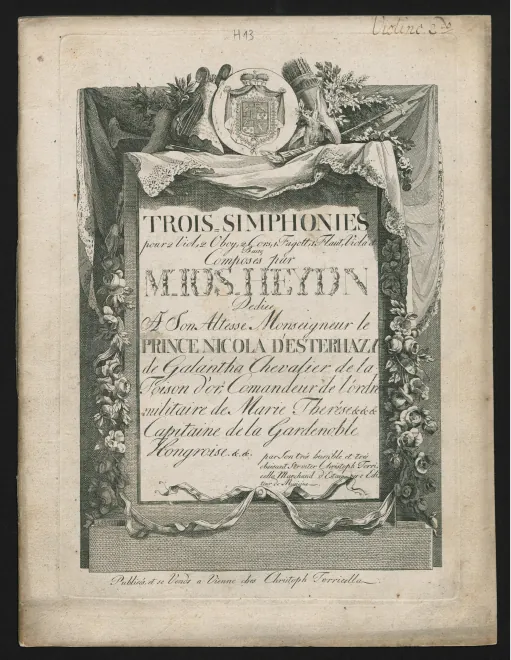 H13
Violino 2do
TROIS SIMPHONIES
pour 2 Viol, 2 Oboy, 2 Cors, 1 Fagott, 1 Flaut, Viola &
Basse
Composes par
M. IOS. HEYDN
Dediee
A Son Altesse Monseigneur le
PRINCE NICOLA D'ESTERHAZY
de Galantha Chevalier de la
Toison d'or, Comandeur de l'ordre
militaire de Marie Therése &&&
Capitaine de la Gardenoble
Hongroise. &&.
par Son très humble et très
obeissant Serviter Christoph Torri
cella Marchand d'Estampes e Edi
teur de Musique
Publiés, et se Vends a Vienne chés Christoph Torricella